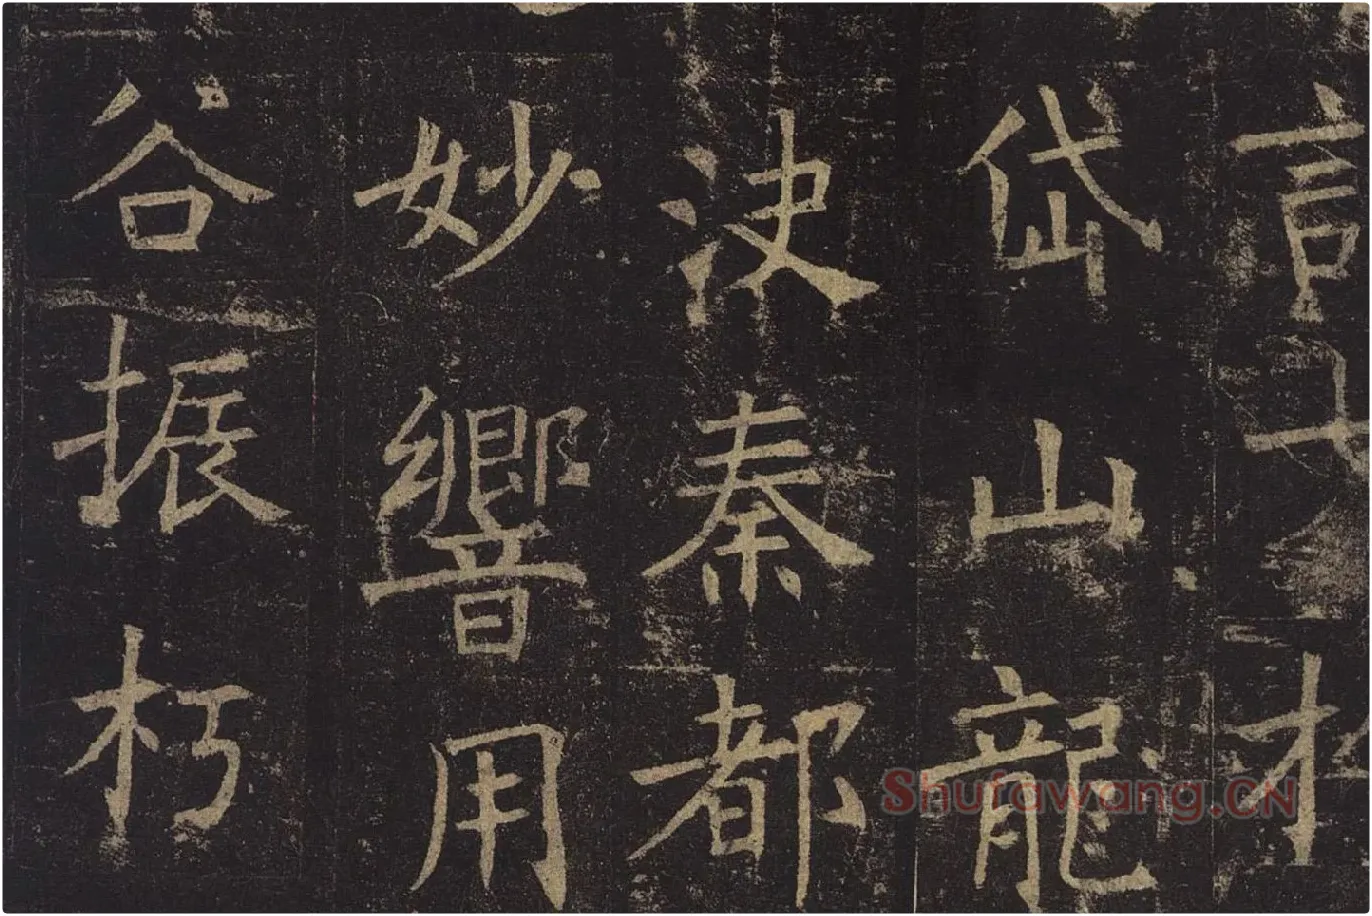 言
岱山龍
決秦都
妙響用
谷振朽
Shufawang.CN